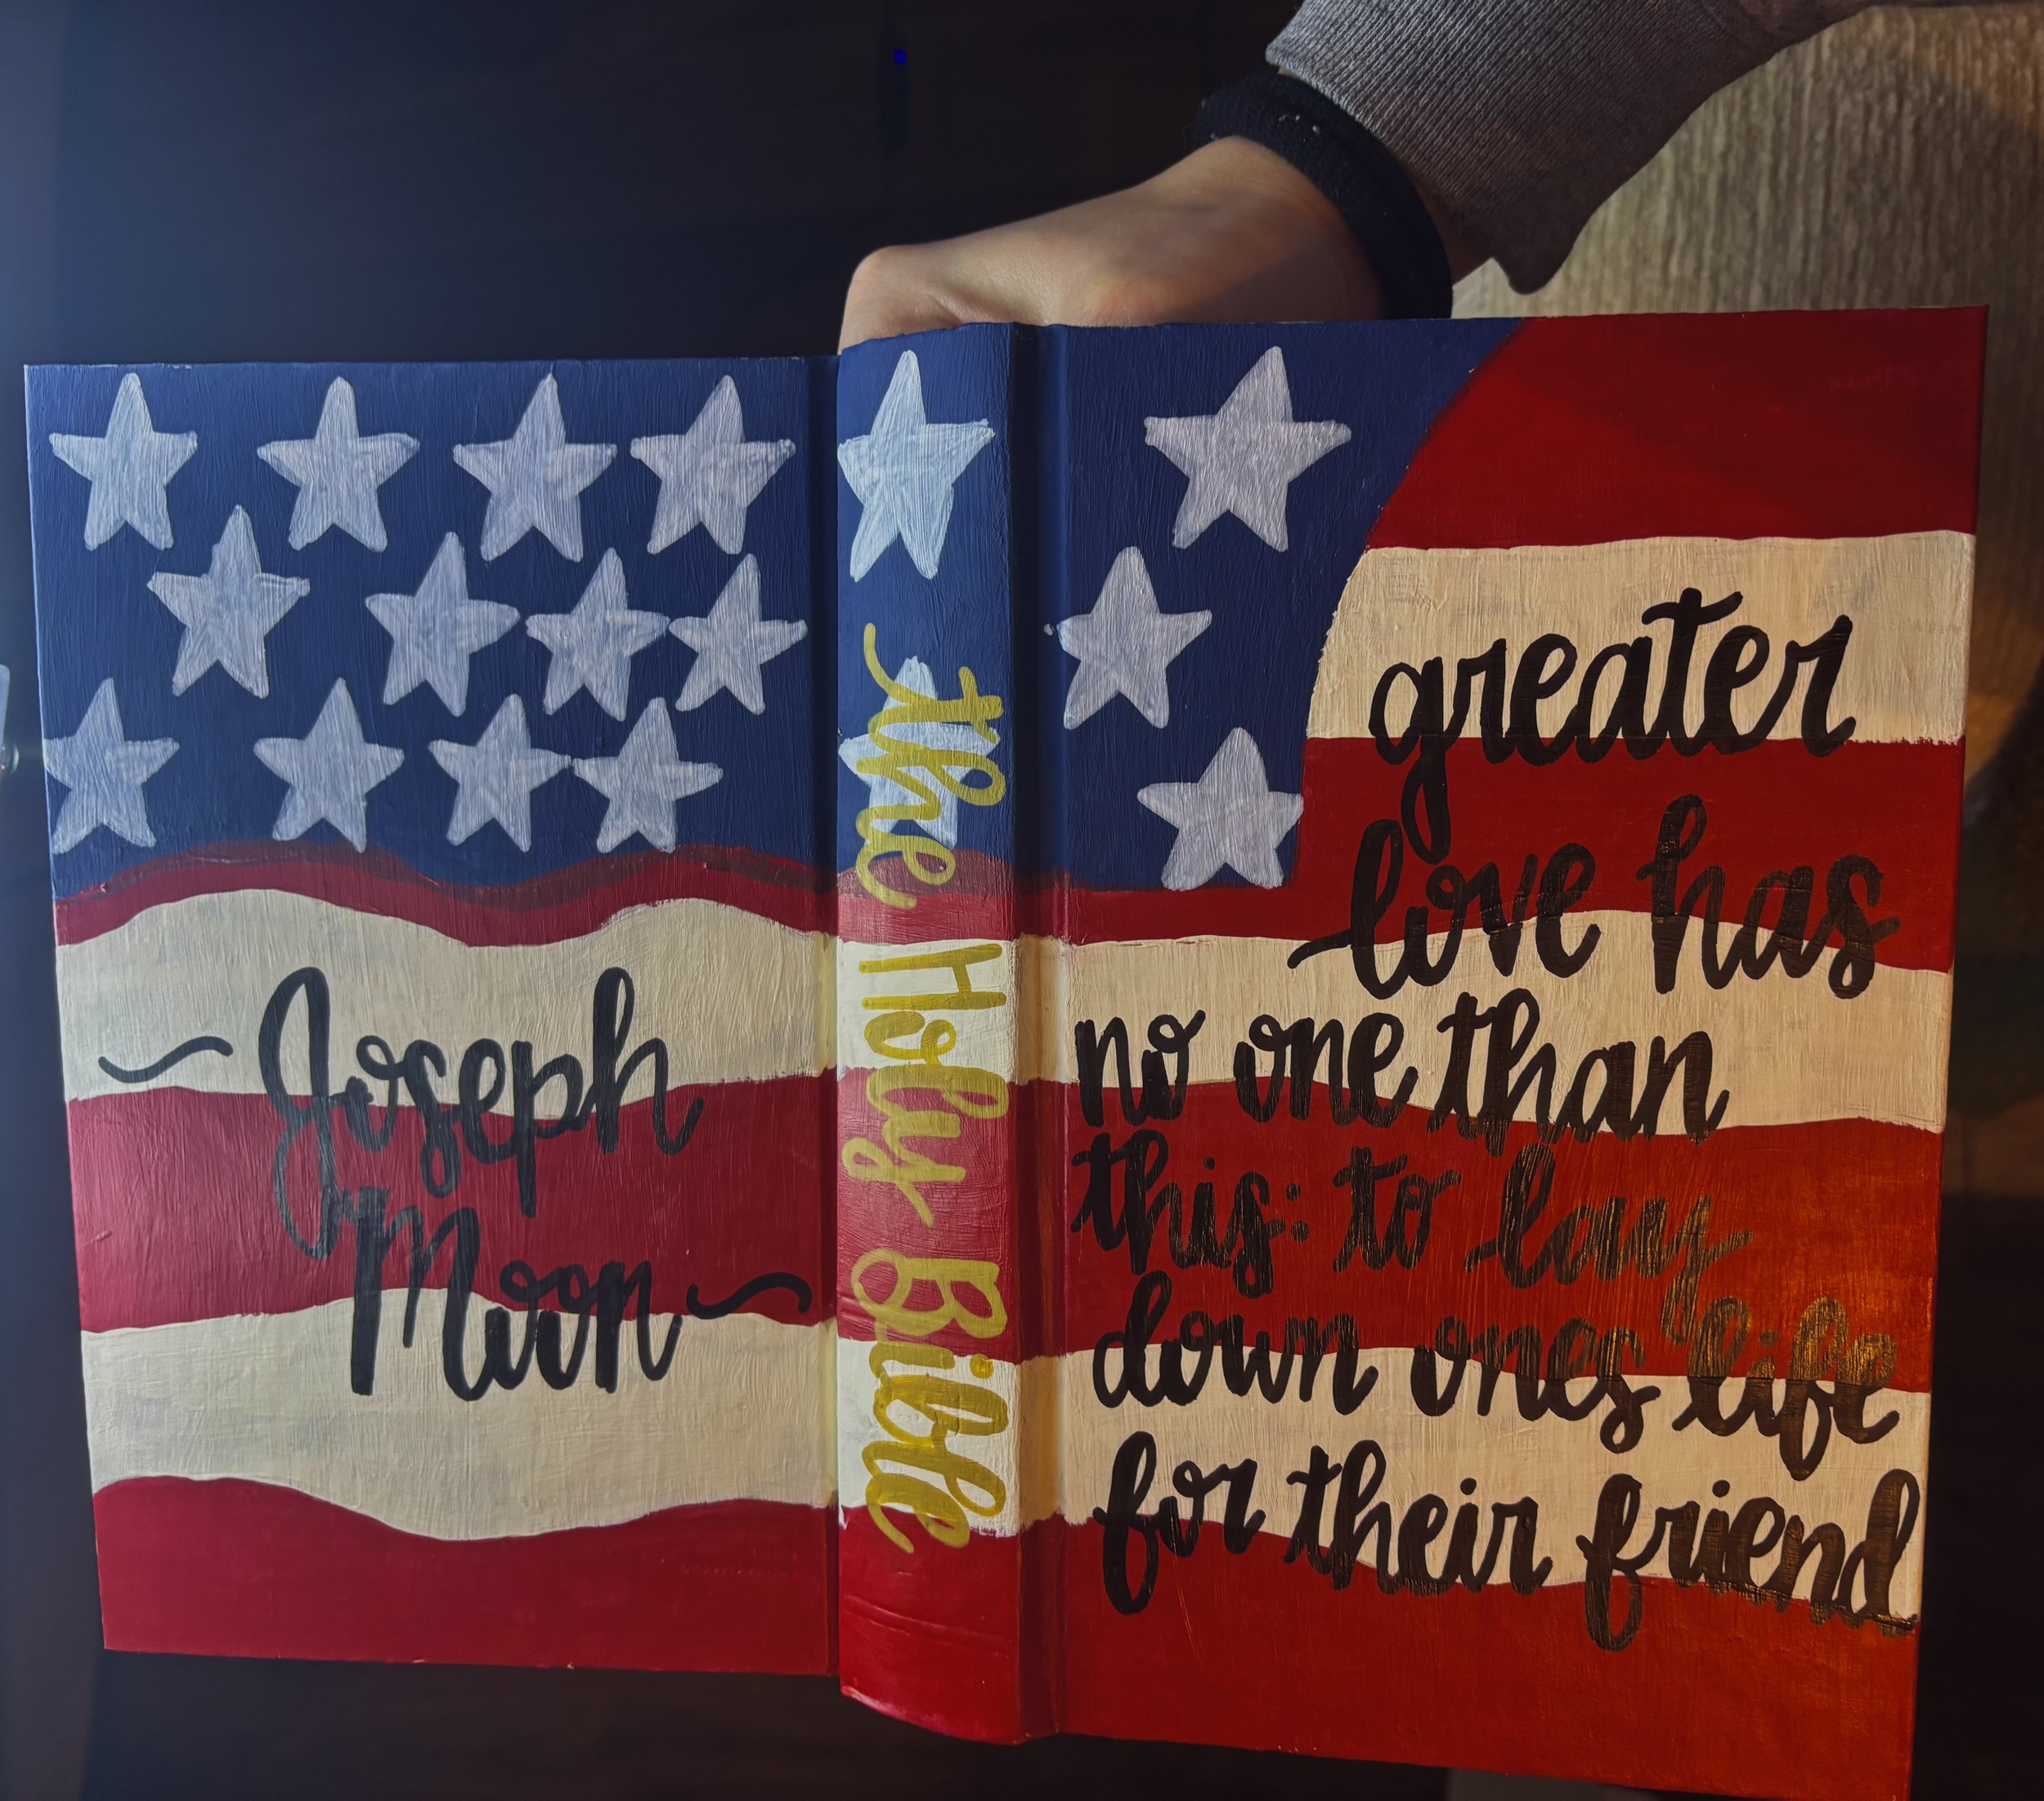 ~Joseph
Moon~
the Holy Bible
greater
love has
no one than
this: to lay
down ones life
for their friend